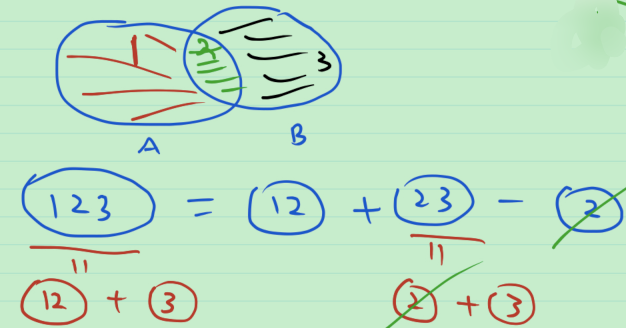 1 2 3
A B
123 = 12 + 23 - 2
12 + 3 2 + 3